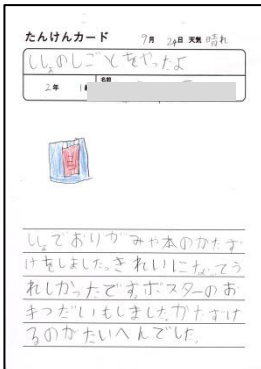 たんけんカード 9月 24日 天気 晴れ
ししょのしごとをやったよ
2年 1 名前
ししょでおりがみや本のかたず
けをしました。きれいになってう
れしかったです。ポスターのお
てつだいもしました。かたずけ
るのがたいへんでした。